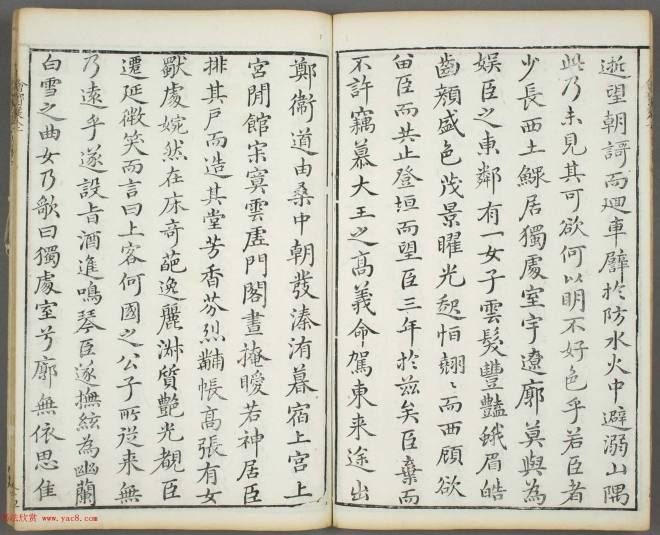 逝望朝謌而迴車譬扵防水火中避溺山隅
此乃未見其可欲何以明不好色乎若臣者
少長西土鰥居獨處室宇遼廓莫與為
娱臣之東鄰有一女子雲髮豐豔蛾眉皓
齒顔盛色茂景曜光起恒翹〻而西顧欲
畱臣而共止登垣而望臣三年扵兹矣臣棄而
不許竊慕大王之髙義命駕東来途出
鄭衞道由桑中朝發溱洧暮宿上宮上
宮閒館寂寞雲虗門閣晝掩曖若神居臣
排其戶而造其堂芳香芬烈黼帳髙張有女
獨處婉然在床竒葩逸麗淋質艷光覩臣
遷延微笑而言曰上客何國之公子所従来無
乃遠乎遂設旨酒進鳴琴臣遂撫絃為幽蘭
白雪之曲女乃歌曰獨處室兮廓無依思佳
书法欣赏 www.yac8.com